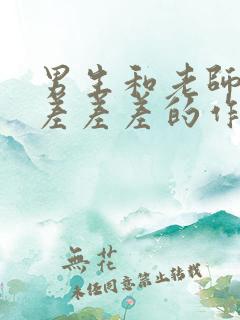 男生和老師
差差差的作
無花
未经同意禁止转载